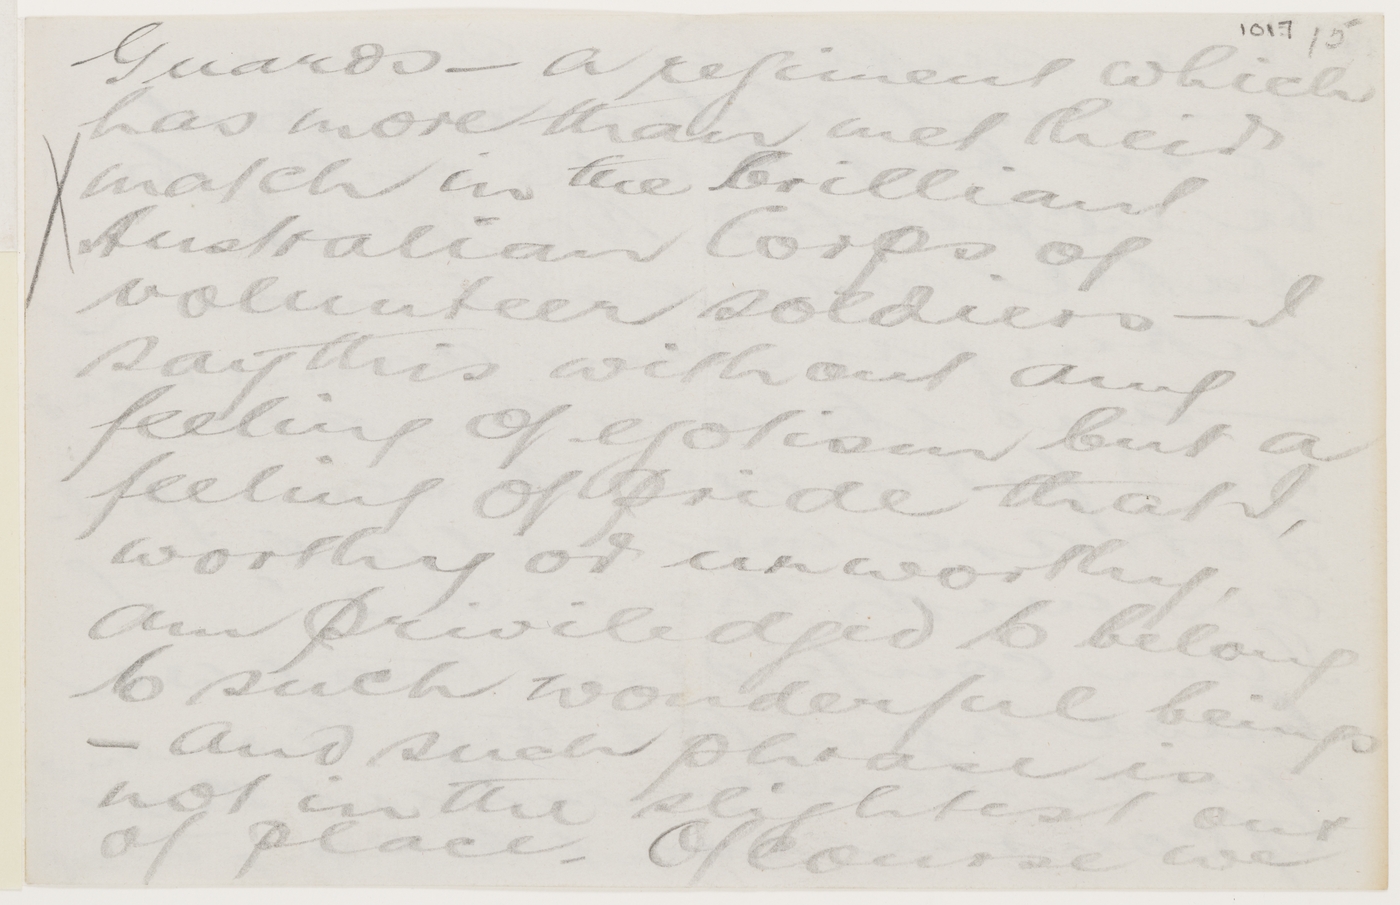 1017 15
Guards — a regiment which
has more than met their
match in the brilliant
Australian Corps of
volunteer soldiers — I
say this without any
feeling of egotism but a
feeling of pride that I,
worthy or unworthy,
am priviledged to belong
to such wonderful beings
— and such phrase is
not in the slightest out
of place. Of course we